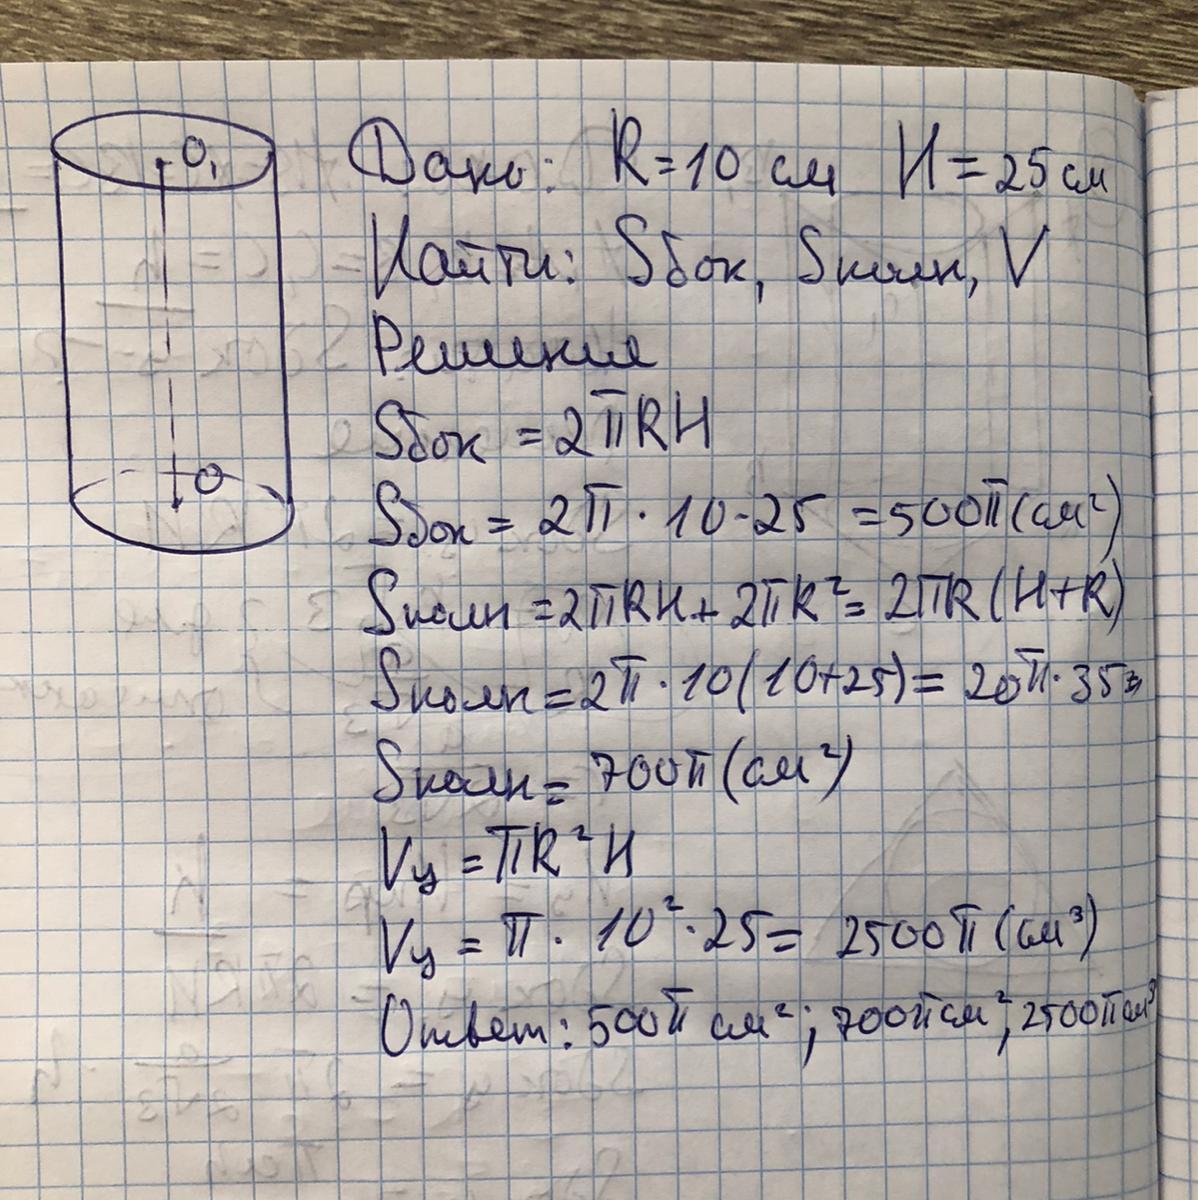 O₁
O
Дано: R = 10 см H = 25 см
Найти: Sбок, Sполн, V
Решение
Sбок = 2πRH
Sбок = 2π · 10 · 25 = 500π (см²)
Sполн = 2πRH + 2πR² = 2πR (H+R)
Sполн = 2π · 10 (10+25) = 20π · 35 =
Sполн = 700π (см²)
Vц = πR²H
Vц = π · 10² · 25 = 2500π (см³)
Ответ: 500π см²; 700π см²; 2500π см³